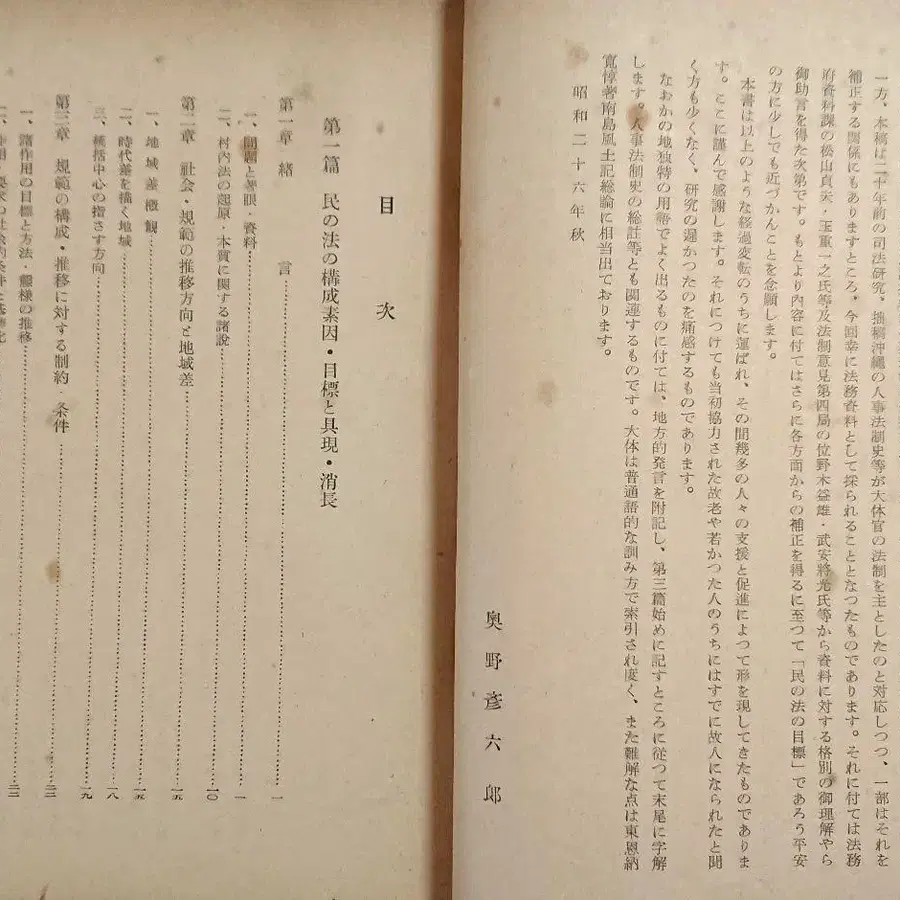 一方、本稿は二十年前の司法研究、拙稿沖縄の人事法制史等が大体官の法制を主としたのと対応しつつ、一部はそれを
補正する関係にもありますところ、今回幸に法務資料として採られることとなつたものであります。それに付ては法務
府資料課の松山貞夫・玉重一之氏等及法制意見第四局の位野木益雄・武安將光氏等から資料に対する格別の御理解やら
御助言を得た次第です。もとより内容に付てはさらに各方面からの補正を得るに至つて「民の法の目標」であろう平安
の方に少しでも近づかんことを念願します。
本書は以上のような経過変転のうちに運ばれ、その間幾多の人々の支援と促進によつて形を現してきたものでありま
す。ここに謹んで感謝します。それにつけても当初協力された故老や若かつた人のうちにはすでに故人になられたと聞
く方も少くなく、研究の遅かつたのを痛感するものであります。
なおかの地独特の用語でよく出るものに付ては、地方的発言を附記し、第三篇始めに記すところに従つて末尾に字解
します。人事法制史の総註等とも関連するものです。大体は普通語的な訓み方で索引され度く、また難解な点は東恩納
寛惇著南島風土記総論に相当出ております。
昭和二十六年秋
奥野彦六郎
目次
第一篇 民の法の構成素因・目標と具現・消長
第一章 緒言 一
一、問題と著眼・資料 一
二、村内法の起原・本質に関する諸説 一〇
第二章 社会・規範の推移方向と地域差 一五
一、地域差概観 一五
二、時代差を描く地域 一八
三、統括中心の指さす方向 一九
第三章 規範の構成・推移に対する制約 条件 二二
一、諸作用の目標と方法・態様の推移 二二